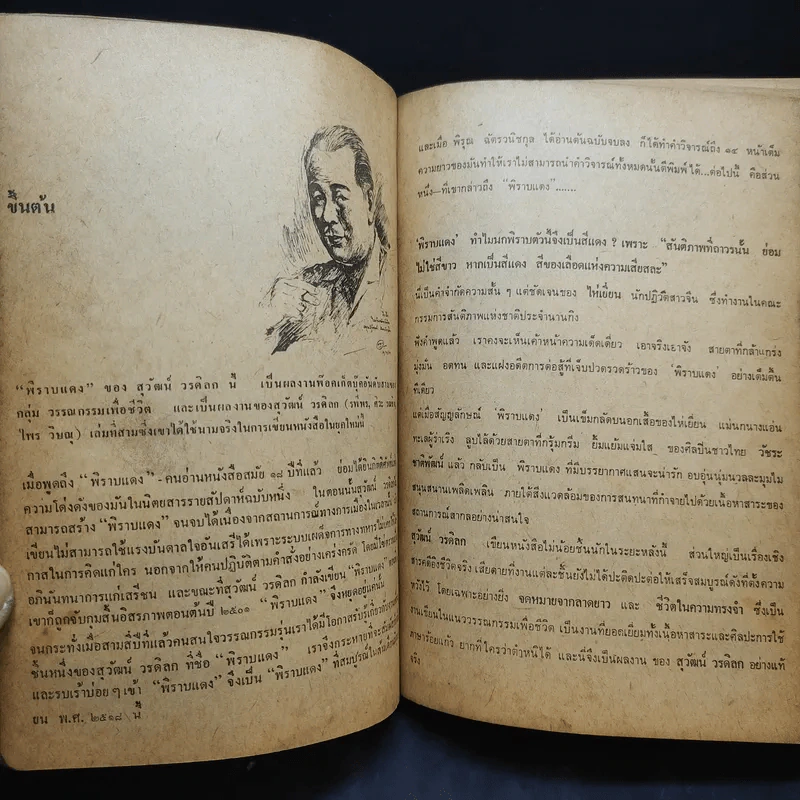 ขั้นต้น
“พิราบแดง” ของ สุวัฒน์ วรดิลก นี้ เป็นผลงานพ๊อคเก็ตบุ๊คอันดับ
กลุ่ม วรรณกรรมเพื่อชีวิต และเป็นผลงานของสุวัฒน์ วรดิลก (รพีพร, ศิวะ
ไพร วิษณุ) เล่มที่สามซึ่งเขาได้ใช้นามจริงในการเขียนหนังสือในยุคใหม่นี้
เมื่อพูดถึง “พิราบแดง” - คนอ่านหนังสือสมัย ๑๘ ปีที่แล้ว ย่อมได้ยินกิตติศัพท์
ความโด่งดังของมันในนิตยสารรายสัปดาห์ฉบับหนึ่ง ในตอนนั้นสุวัฒน์
สามารถสร้าง “พิราบแดง” จนจบได้เนื่องจากสถานการณ์ทางการเมืองในเวลานั้น
เขียนไม่สามารถใช้แรงบันดาลใจอันเสรีได้เพราะระบบเผด็จการทางทหาร
กาสในการคิดแก่ใคร นอกจากให้คนปฏิบัติตามคำสั่งอย่างเคร่งครัด
อภินันทนาการแก่เสรีชน และขณะที่สุวัฒน์ วรดิลก กำลังเขียน “พิราบแดง”
เขาก็ถูกจับกุมสิ้นอิสรภาพตอนต้นปี ๒๕๐๑ “พิราบแดง” จึงหยุดอยู่แค่นั้น
จนกระทั่งเมื่อสามสี่ปีที่แล้วคนสนใจวรรณกรรมรุ่นเราได้มีโอกาสรับรู้เกี่ยวกับ
ชิ้นหนึ่งของสุวัฒน์ วรดิลก ที่ชื่อ “พิราบแดง” เราจึงกระหายที่จะ
และรบเร้าบ่อย ๆ เข้า “พิราบแดง” จึงเป็น “พิราบแดง” ที่สมบูรณ์ใน
ยน พ.ศ. ๒๕๑๘ นี้
และเมื่อ พิรุณ ฉัตรวนิชกุล ได้อ่านต้นฉบับจบลง ก็ได้ทำคำวิจารณ์ถึง ๑๕ หน้าเต็ม
ความยาวของมันทำให้เราไม่สามารถนำคำวิจารณ์ทั้งหมดนั้นตีพิมพ์ได้...ต่อไปนี้ คือส่วน
หนึ่ง—ที่เขากล่าวถึง “พิราบแดง”.......
‘พิราบแดง’ ทำไมนกพิราบตัวนี้จึงเป็นสีแดง ? เพราะ “สันติภาพที่ถาวรนั้น ย่อม
ไม่ใช่สีขาว หากเป็นสีแดง สีของเลือดแห่งความเสียสละ”
นี่เป็นคำจำกัดความสั้น ๆ แต่ชัดเจนของ ไห่เยี่ยน นักปฏิวัติสาวจีน ซึ่งทำงานในคณะ
กรรมการสันติภาพแห่งชาติประจำนานกิง
ฟังคำพูดแล้ว เราคงจะเห็นเค้าหน้าความเด็ดเดี่ยว เอาจริงเอาจัง สายตาที่กล้าแกร่ง
มุ่งมั่น อดทน และแฝงอดีตการต่อสู้ที่เจ็บปวดรวดร้าวของ ‘พิราบแดง’ อย่างเต็มตื้น
ทีเดียว
แต่เมื่อสัญญลักษณ์ ‘พิราบแดง’ เป็นเข็มกลัดบนอกเสื้อของไห่เยี่ยน แม่นกนางแอ่น
ทะเลผู้ร่าเริง ลูบไล้ด้วยสายตาที่กรุ้มกริ่ม ยิ้มแย้มแจ่มใส ของศิลปินชาวไทย วัชระ
ชาติพัฒน์ แล้ว กลับเป็น พิราบแดง ที่มีบรรยากาศแสนจะน่ารัก อบอุ่นนุ่มนวลละมุนละไม
หนุนสนานเพลิดเพลิน ภายใต้สิ่งแวดล้อมของการสนทนาที่กำจายไปด้วยเนื้อหาสาระของ
สถานการณ์สากลอย่างน่าสนใจ
สุวัฒน์ วรดิลก เขียนหนังสือไม่น้อยชิ้นนักในระยะหลังนี้ ส่วนใหญ่เป็นเรื่องเชิง
สารคดีอิงชีวิตจริง เสียดายที่งานแต่ละชิ้นยังไม่ได้ปะติดปะต่อให้เสร็จสมบูรณ์ดังที่ตั้งความ
หวังไว้ โดยเฉพาะอย่างยิ่ง จดหมายจากลาดยาว และ ชีวิตในความทรงจำ ซึ่งเป็น
งานเขียนในแนววรรณกรรมเพื่อชีวิต เป็นงานที่ยอดเยี่ยมทั้งเนื้อหาสาระและศิลปะการใช้
ภาษาร้อยแก้ว ยากที่ใครว่าตำหนิได้ และนี่จึงเป็นผลงาน ของ สุวัฒน์ วรดิลก อย่างแท้
จริง